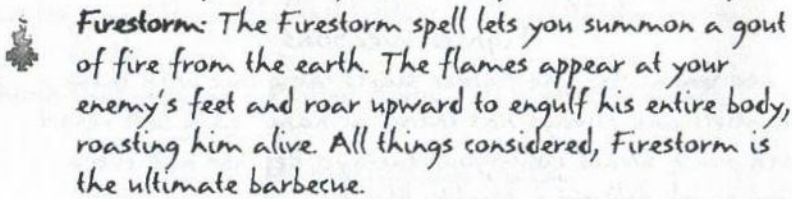 Firestorm: The Firestorm spell lets you summon a gout
of fire from the earth. The flames appear at your
enemy's feet and roar upward to engulf his entire body,
roasting him alive. All things considered, Firestorm is
the ultimate barbecue.